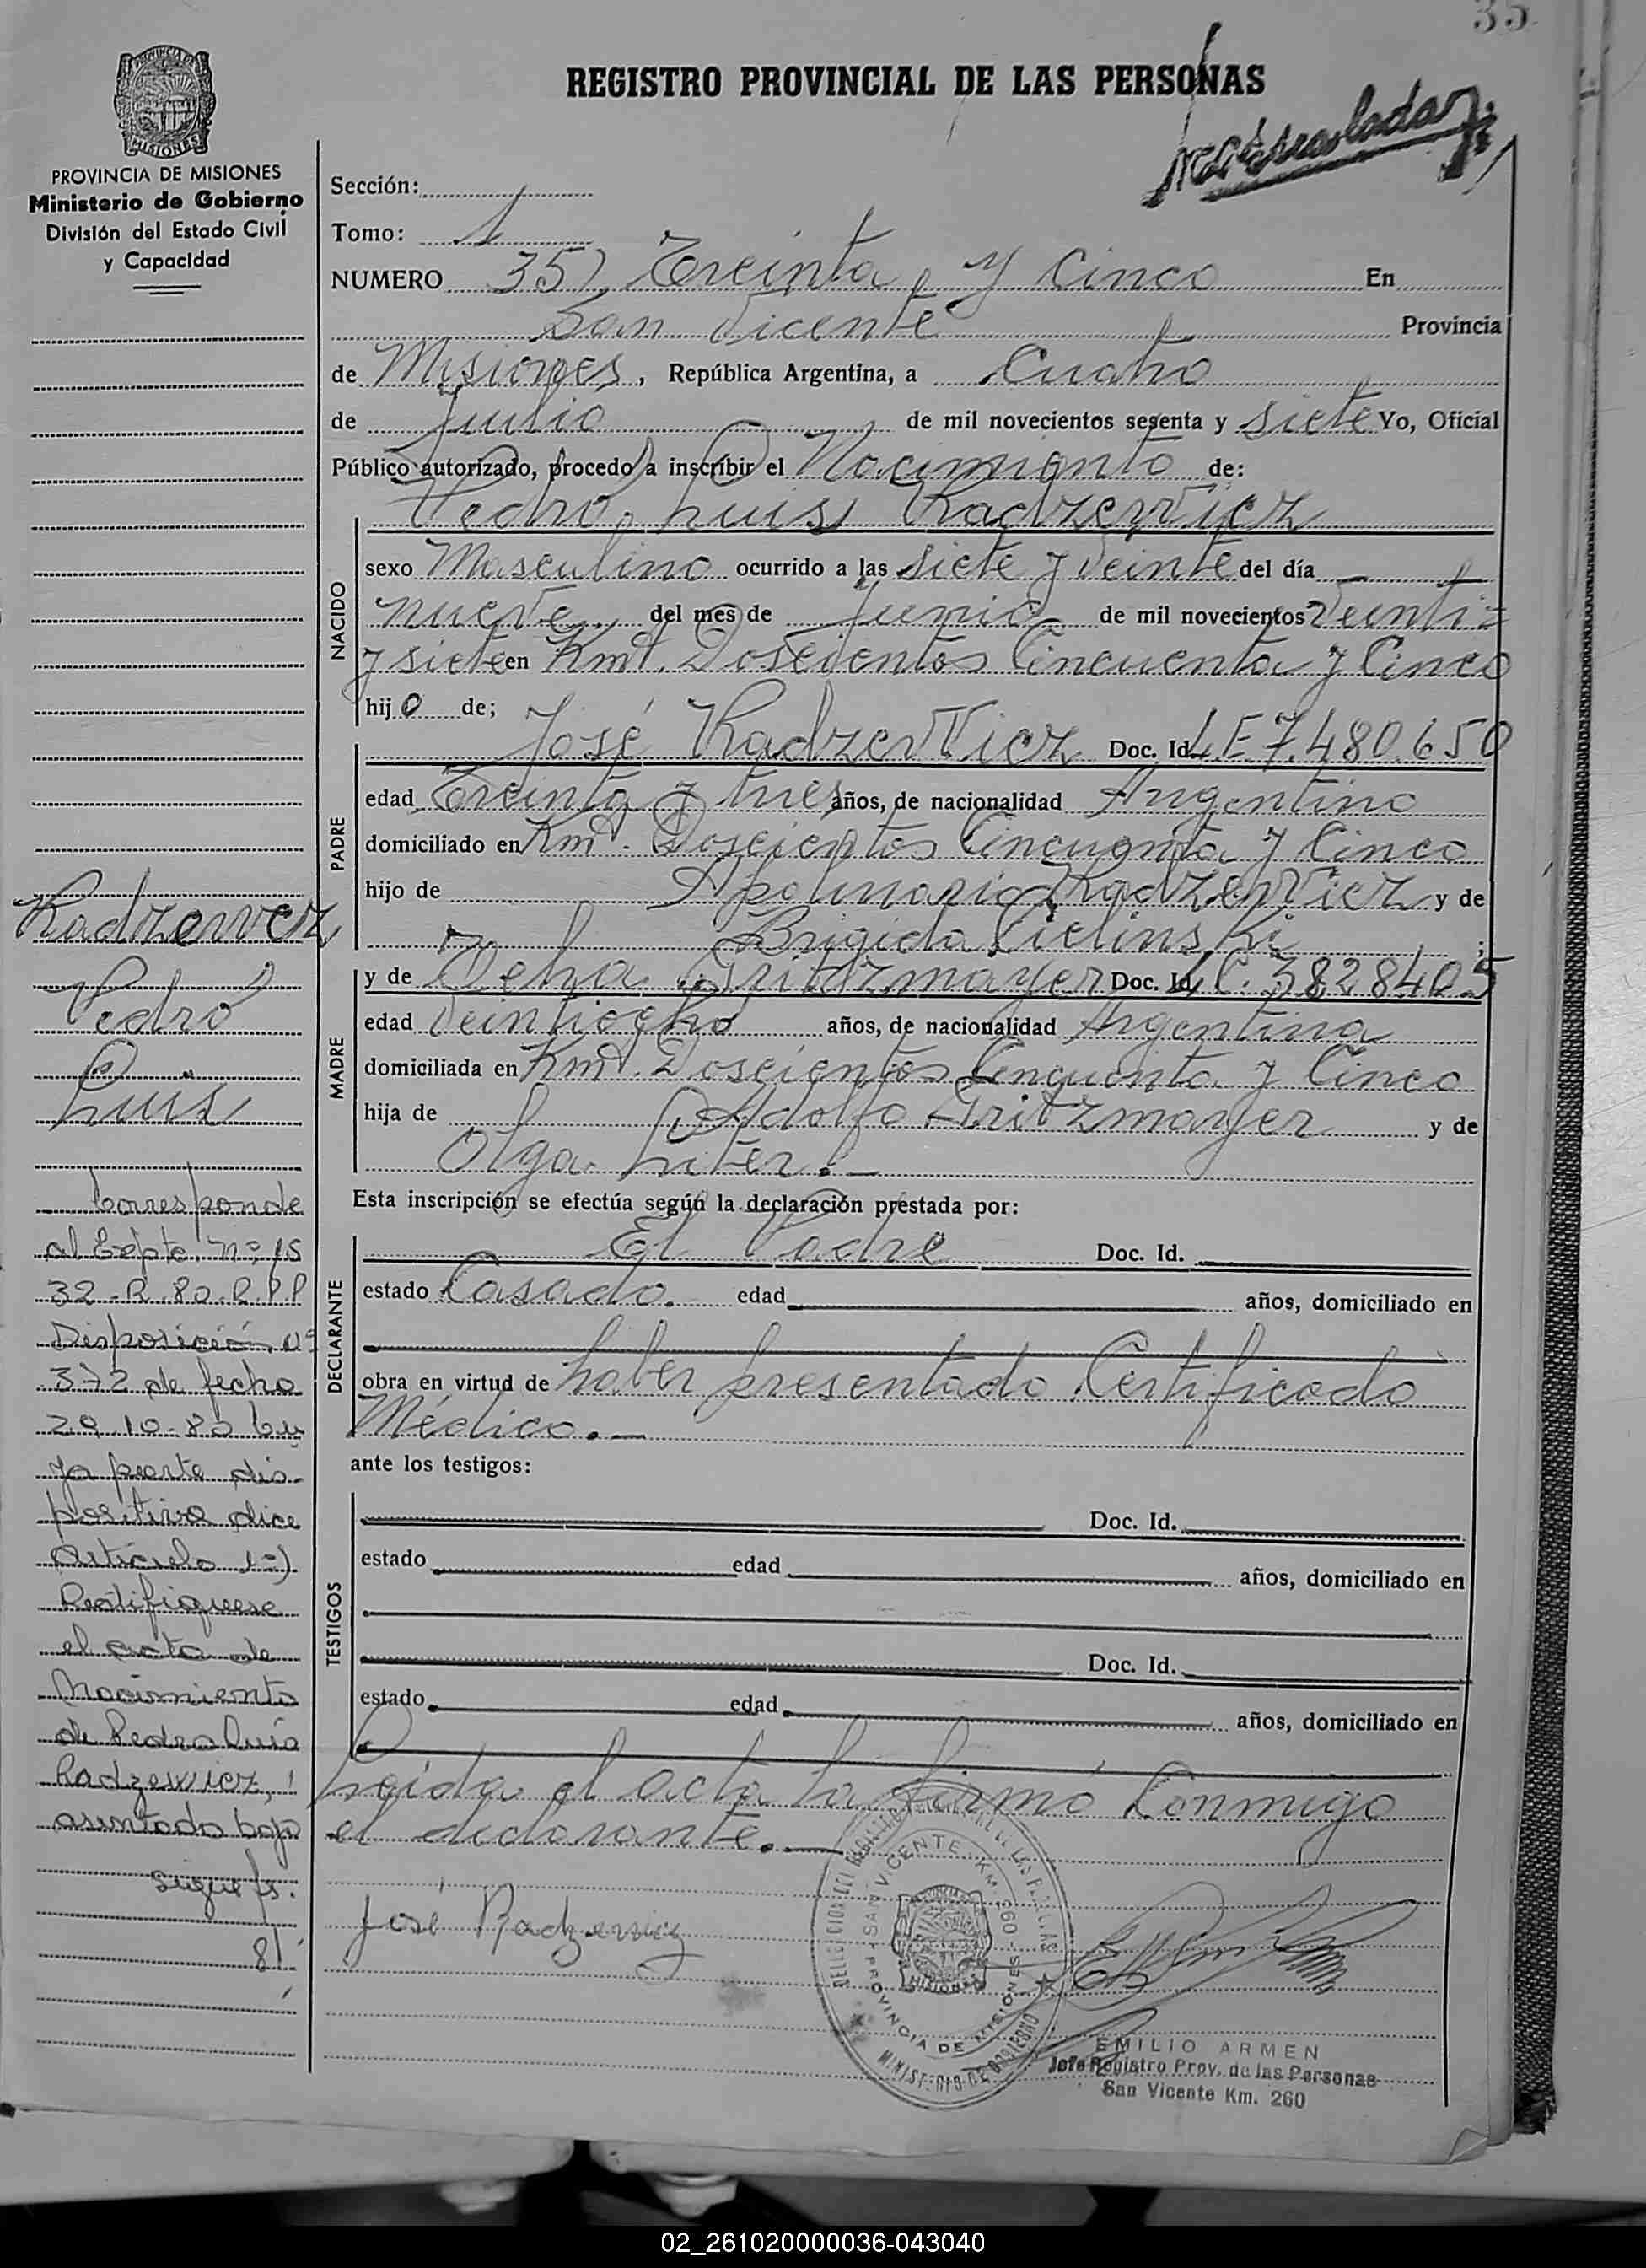 35
REGISTRO PROVINCIAL DE LAS PERSONAS
PROVINCIA DE MISIONES
Ministerio de Gobierno
División del Estado Civil
y Capacidad
Sección:
Tomo: 1
NUMERO 35) Treinta y Cinco En
San Vicente Provincia
de Misiones, República Argentina, a Cuatro
de Julio de mil novecientos sesenta y siete Yo, Oficial
Público autorizado, procedo a inscribir el Nacimiento de:
Pedro Luis Radzewicz
NACIDO
sexo Masculino ocurrido a las siete y veinte del día
nueve del mes de Junio de mil novecientos Veinti
y siete en Kmt. Doscientos Cincuenta y Cinco
hijo de;
José Radzewicz Doc. Id. L.E. 7.480.650
PADRE
edad Treinta y tres años, de nacionalidad Argentino
domiciliado en Kmt. Doscientos Cincuenta y Cinco
hijo de Apolinario Radzewicz y de
Brigida Cielinski
MADRE
y de Gritzmayer Doc. Id. L.C. 3828405
edad Veintiocho años, de nacionalidad Argentina
domiciliada en Kmt. Doscientos Cincuenta y Cinco
hija de Adolfo Gritzmayer y de
Olga Luter.-
Esta inscripción se efectúa según la declaración prestada por:
DECLARANTE
El Padre Doc. Id.
estado Casado. edad años, domiciliado en
obra en virtud de haber presentado Certificado
Médico.-
ante los testigos:
TESTIGOS
Doc. Id.
estado edad años, domiciliado en
Doc. Id.
estado edad años, domiciliado en
Leida el acta la firmó Conmigo
el declarante.-
José Radzewicz
SAN VICENTE KM 260
PROVINCIA DE MISIONES
MINISTERIO DE GOBIERNO
MISIONES
EMILIO ARMEN
Jefe Registro Prov. de las Personas
San Vicente Km. 260
Radzewicz
Pedro
Luis
Corresponde
al Expte. nº 15
32-R.80.R.P.P
Disposición nº
372 de fecha
29.10.80 cu
ya parte dis-
positiva dice
Artículo 1º)
Rectifiquese
el acta de
Nacimiento
de Pedro Luis
Radzewicz,
asentado bajo
sigue fs.
81
02_261020000036-043040